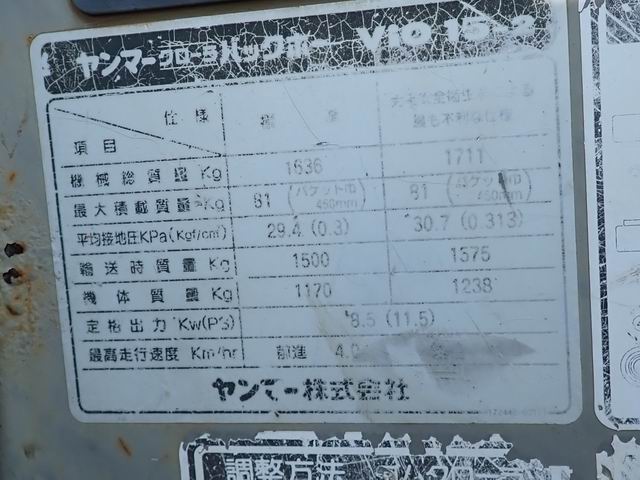 ヤンマークローラバックホー ViO 15-2
仕様 標準
項目 最も不利な仕様
機械総質量 Kg 1636 1711
最大積載質量 Kg 81 (バケット巾 450mm) 81 (バケット巾 450mm)
平均接地圧KPa(Kgf/cm²) 29.4 (0.3) 30.7 (0.313)
輸送時質量 Kg 1500 1575
機体質量 Kg 1170 1238
定格出力 Kw(PS) 8.5 (11.5)
最高走行速度 Km/hr 前進 4.0
ヤンマー株式会社
調整方法